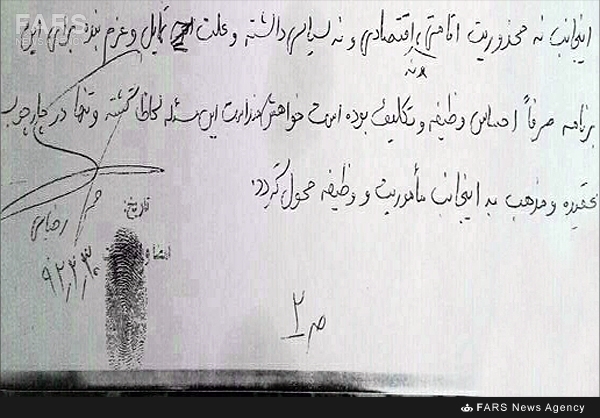 اینجانب نه محذوریت اقامتی، نه اقتصادی و نه سیاسی داشته و علت تمایل و عزم بنده برای این
برنامه صرفاً احساس وظیفه و تکلیف بوده است خواهش‌مند است این مسئله لحاظ گشته و تنها در چارچوب
عقیده و مذهب به اینجانب مأموریت و وظیفه محول گردد.
تاریخ:
امضا و
ص ۲
FARS
NEWS AGENCY
FARS News Agency